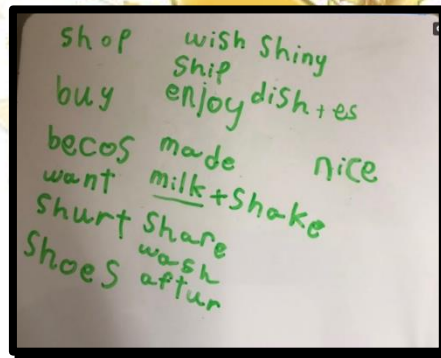 shop wish shiny
ship
buy enjoy dish+es
becos made nice
want milk+shake
shurt share
wash
shoes aftur